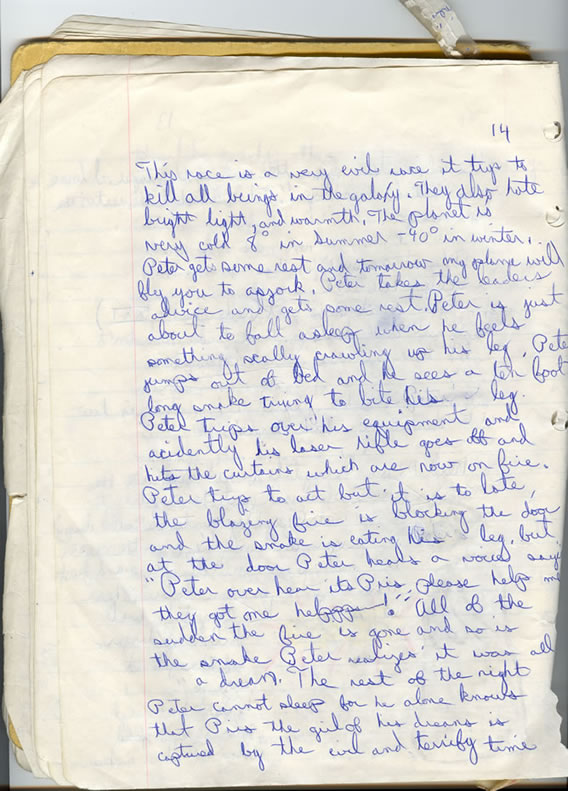 14
This race is a very evil race it trys to
kill all beings in the galaxy. They also hate
bright light, and warmth. The planet is
very cold 8° in summer -40° in winter.
Peter get some rest and tomarrow my plane will
fly you to apyork. Peter takes the leaders
advice and gets some rest. Peter is just
about to fall asleep when he feels
something scally crawling up his leg. Pete
jumps out of bed and he sees a ten foot
long snake trying to bite his leg.
Peter trips over his equipment and
acidently his laser rifle goes off and
hits the curtains which are now on fire.
Peter trys to act but it is to late,
the blazing fire is blocking the door
and the snake is eating his leg, but
at the door Peter hears a voice says
"Peter over hear its Pris please helps me
they got me helpppp-!" All of the
sudden the fire is gone and so is
the snake Peter realizes it was all
a dream. The rest of the night
Peter cannot sleep for he alone knows
that Pris the girl of his dreams is
captured by the evil and terrify time